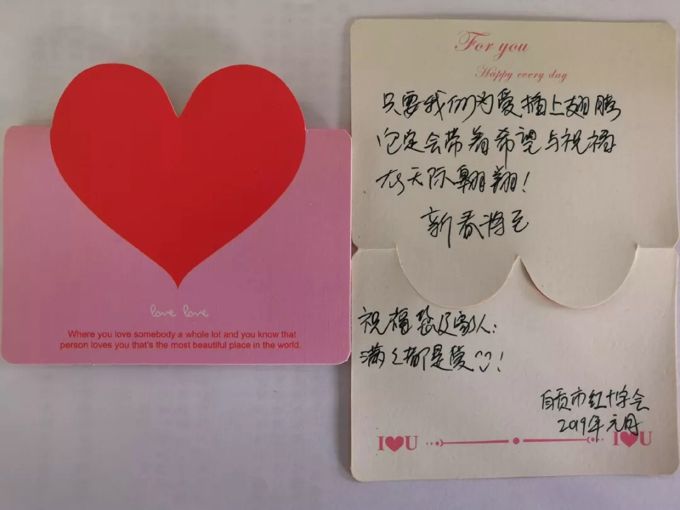 love love
Where you love somebody a whole lot and you know that
person loves you that's the most beautiful place in the world.
For you
Happy every day
只要我们为爱插上翅膀
它定会带着希望与祝福
在天际翱翔！
新春将至
祝福您及家人：
满满都是爱！
自贡市红十字会
2019年元月
I❤U I❤U